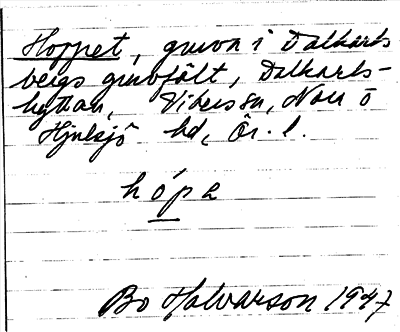 Hoppet, gruva i Dalkarls
bergs gruvfält, Dalkarls-
hyttan, Vikers sn, Nora o
Hjulsjö bd, Ör. l.
hópa
Bo Halvarson 1947